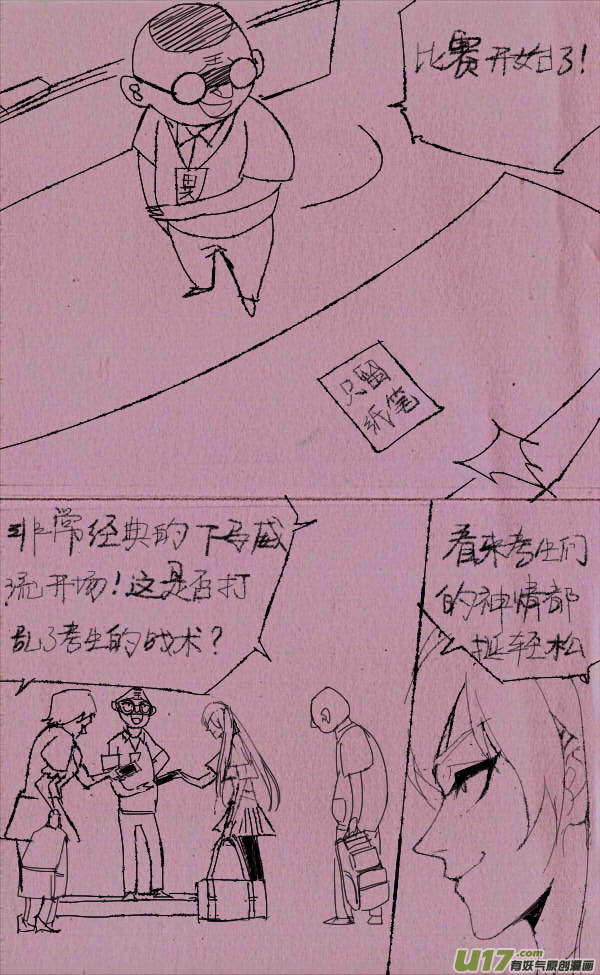 比赛开始了！
王
只留
纸笔
非常经典的下马威
流开场！这是否打
乱了考生的战术？
看来考生们
的神情都
挺轻松
U17.com
有妖气原创漫画